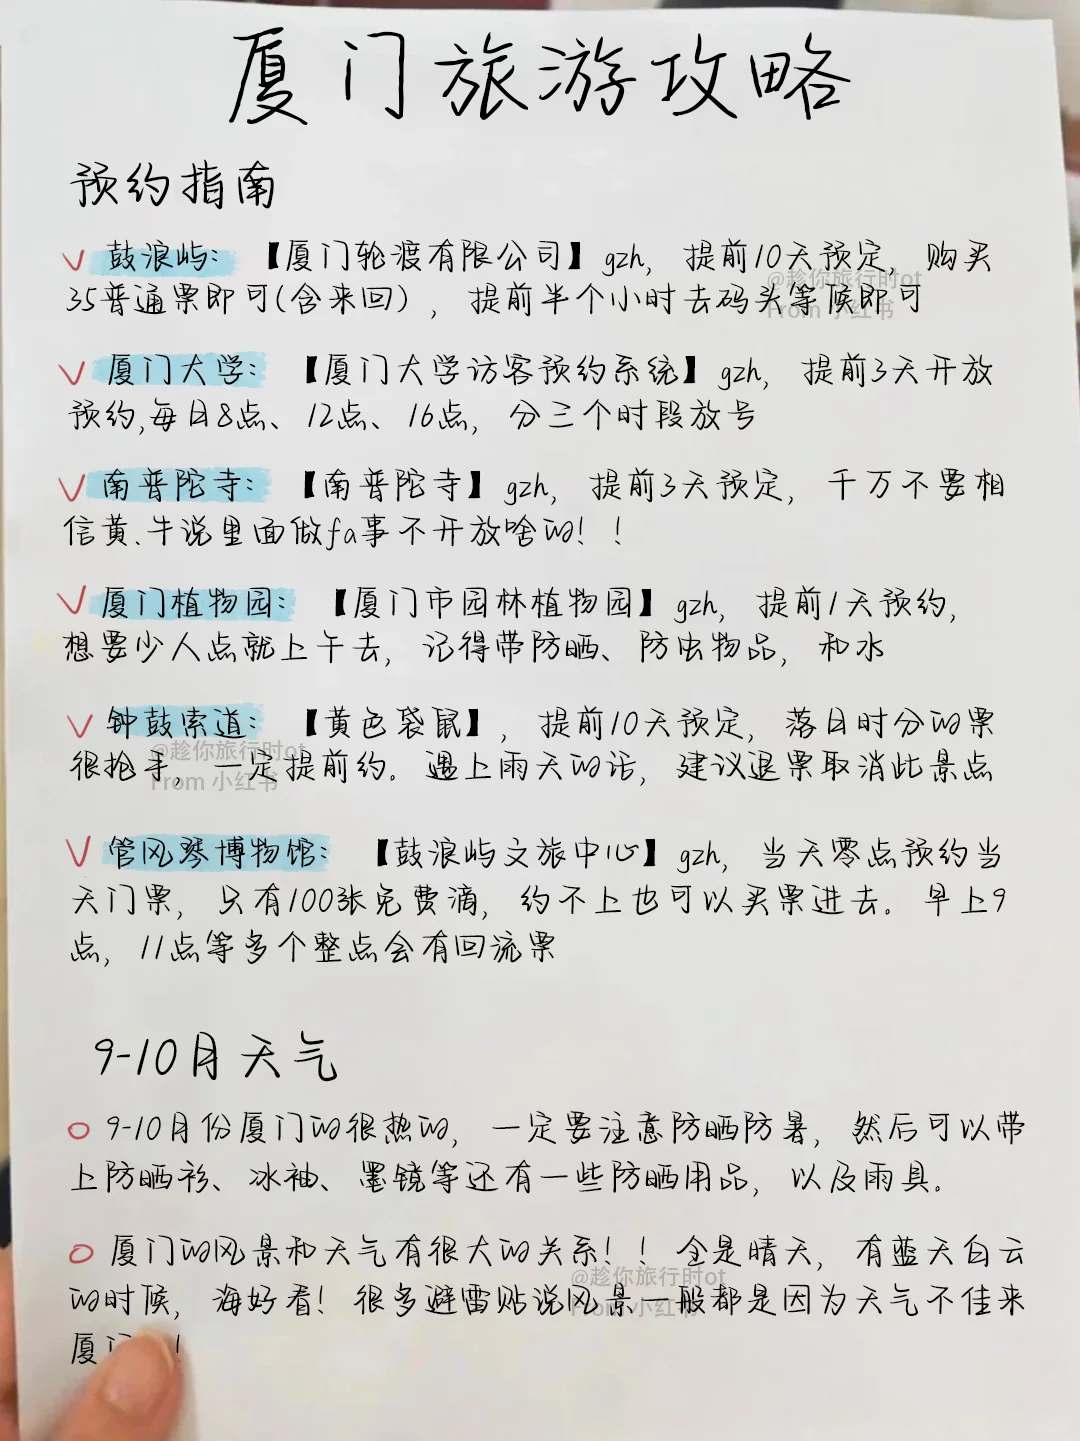 厦门旅游攻略
预约指南
鼓浪屿：【厦门轮渡有限公司】gzh，提前10天预定，购买
35普通票即可(含来回)，提前半个小时去码头等候即可
@趁你旅行时ot
From 小红书
厦门大学：【厦门大学访客预约系统】gzh，提前3天开放
预约,每日8点、12点、16点，分三个时段放号
南普陀寺：【南普陀寺】gzh，提前3天预定，千万不要相
信黄.牛说里面做fa事不开放啥的！！
厦门植物园：【厦门市园林植物园】gzh，提前1天预约，
想要少人点就上午去，记得带防晒、防虫物品，和水
钟鼓索道：【黄色袋鼠】，提前10天预定，落日时分的票
很抢手，一定提前约。遇上雨天的话，建议退票取消此景点
@趁你旅行时ot
From 小红书
管风琴博物馆：【鼓浪屿文旅中心】gzh，当天零点预约当
天门票，只有100张免费滴，约不上也可以买票进去。早上9
点，11点等多个整点会有回流票
9-10月天气
9-10月份厦门的很热的，一定要注意防晒防暑，然后可以带
上防晒衫、冰袖、墨镜等还有一些防晒用品，以及雨具。
厦门的风景和天气有很大的关系！！全是晴天，有蓝天白云
的时候，海好看！很多避雷贴说风景一般都是因为天气不佳来
@趁你旅行时ot
From 小红书
厦门！